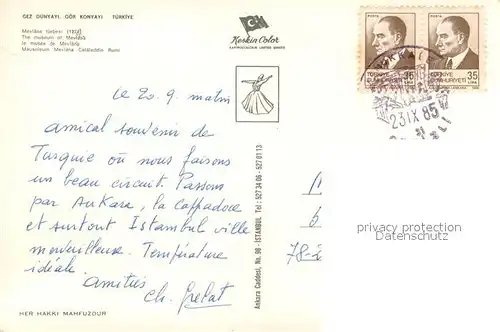 GEZ DÜNYAYI, GÖR KONYAYI TÜRKİYE
Mevlâna türbesi
The museum of Mevlâna
le musée de Mevlâna
Mausoleum Mevlâna Celâleddin Rumi
Keskin Color
KARTPOSTALCILIK LIMITED ŞİRKETİ
POSTA
POSTA
TÜRKİYE CUMHURİYETİ
35 LİRA
TÜRKİYE CUMHURİYETİ
35 LİRA
23 IX 85
Le 20.9. matin
Amical souvenir de
Turquie où nous faisons
un beau circuit. Passons
par Ankara, la Cappadoce
et surtout Istambul ville
merveilleuse. Température
idéale.
Amitiés
Ch. Grelat
Ankara Caddesi, No. 98 - İSTANBUL Tel : 527 34 06 - 527 01 13
78-2
privacy protection
Datenschutz
HER HAKKI MAHFUZDUR